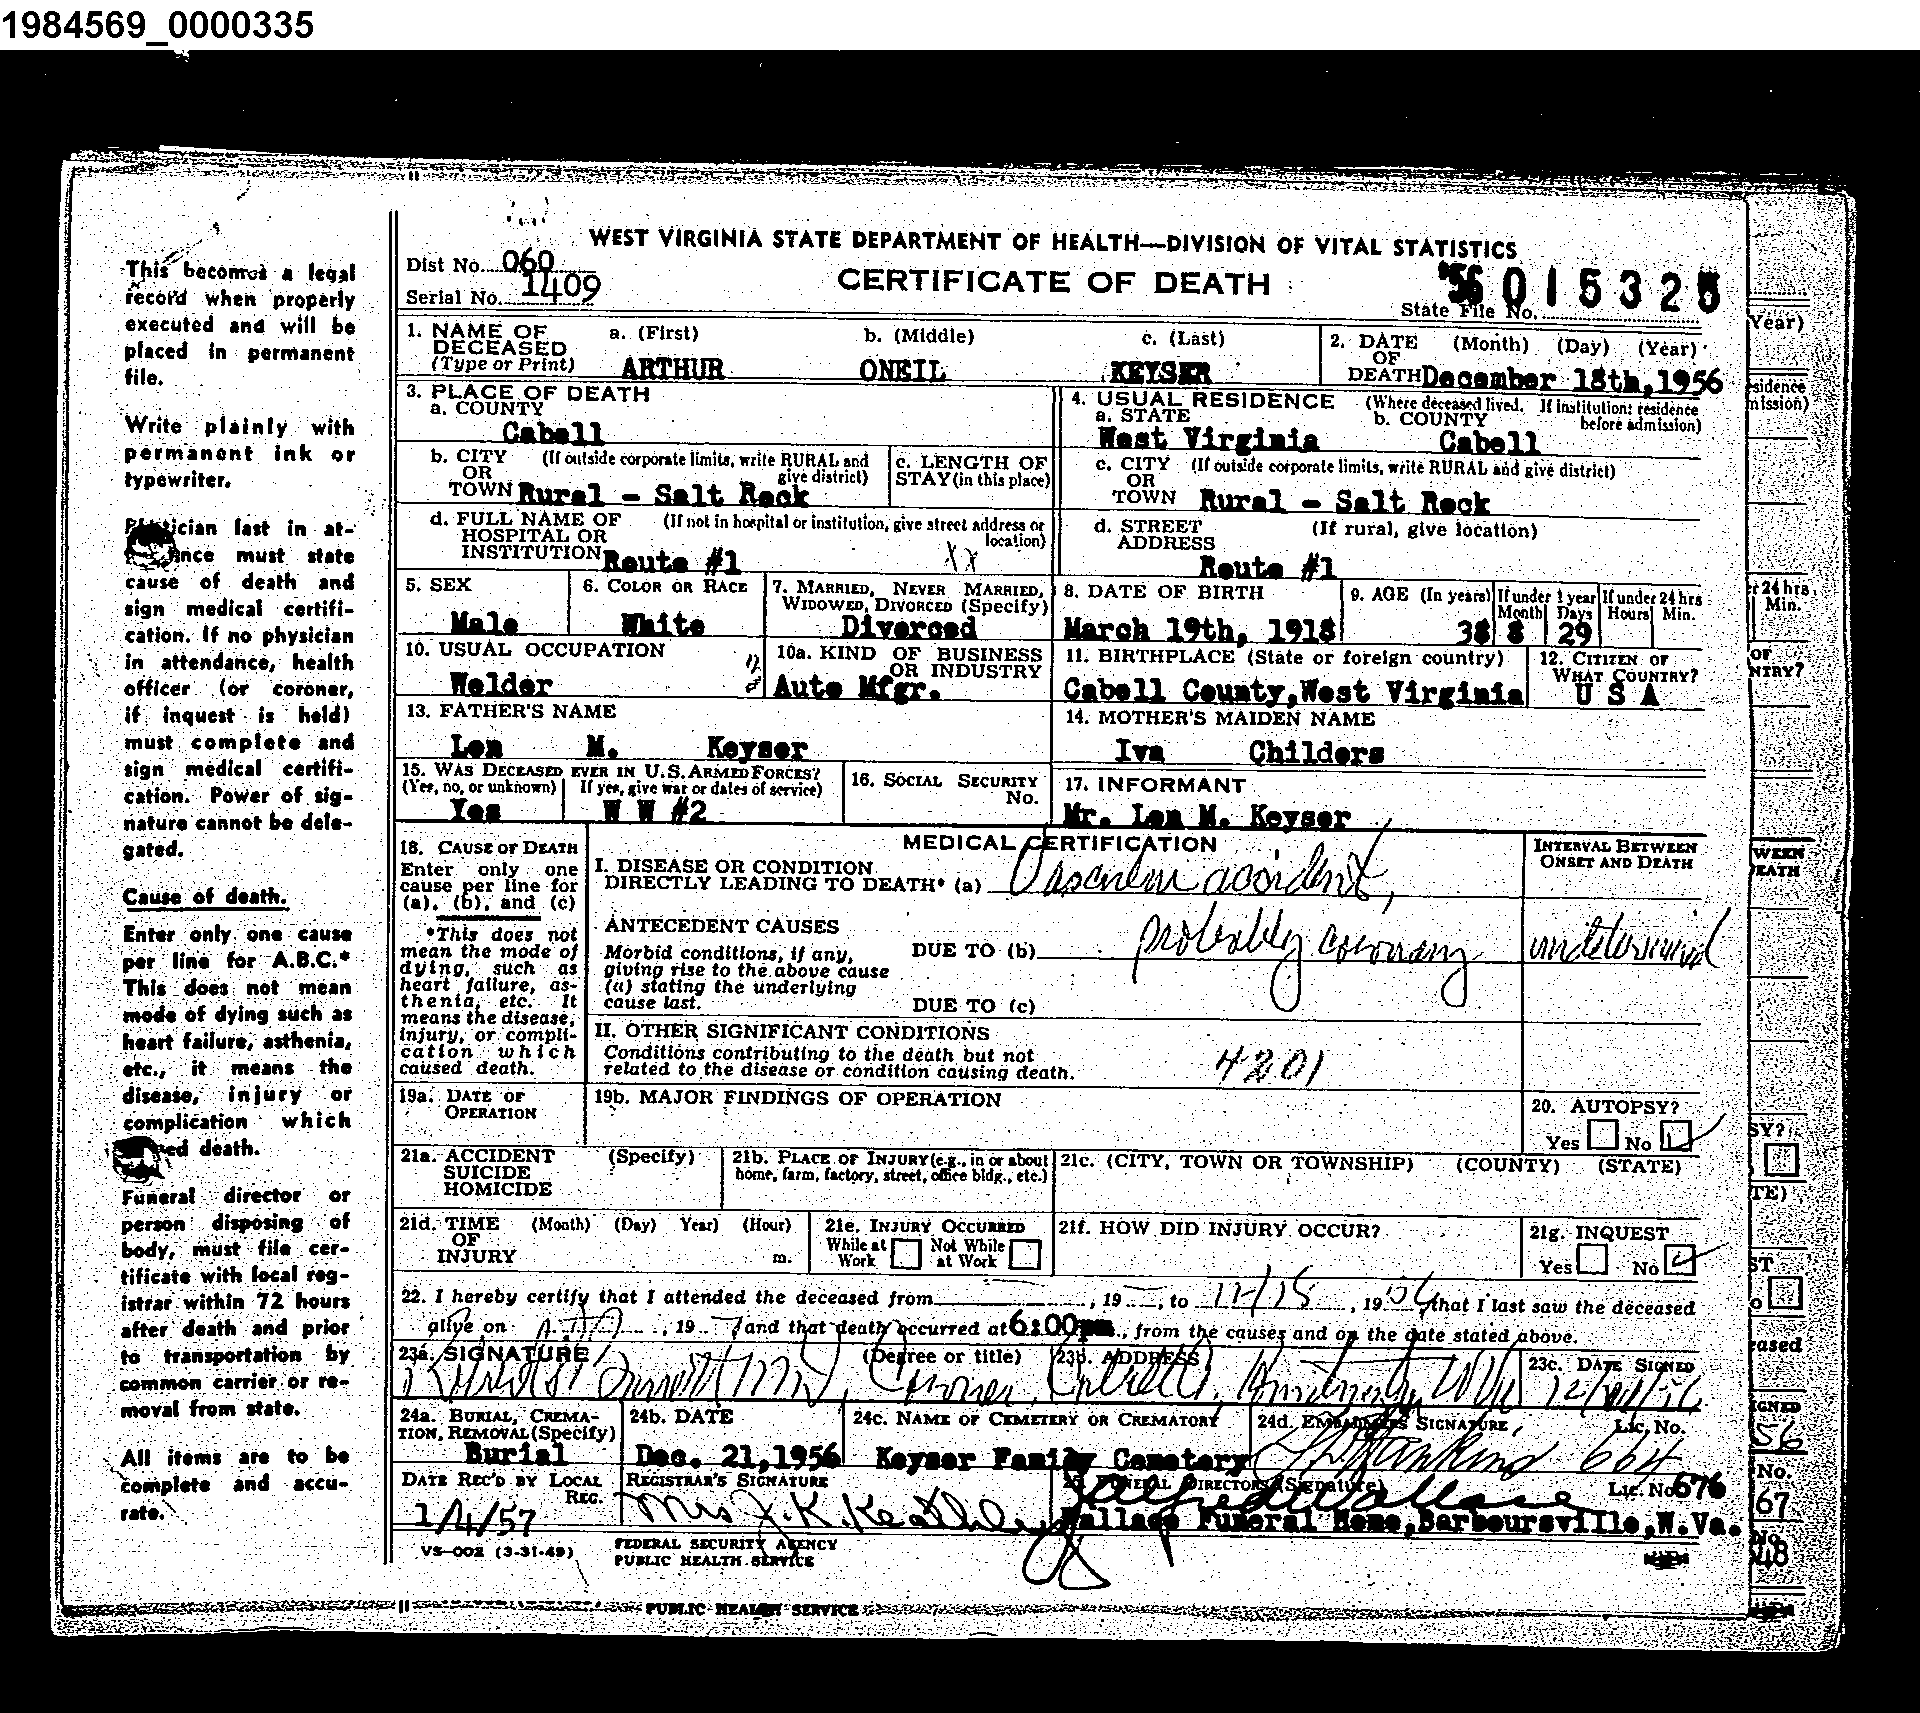 1984569_0000335
This becomes a legal
record when properly
executed and will be
placed in permanent
file.
Write plainly with
permanent ink or
typewriter.
Physician last in at-
must state
cause of death and
sign medical certifi-
cation. If no physician
in attendance, health
officer (or coroner,
if inquest is held)
must complete and
sign medical certifi-
cation. Power of sig-
nature cannot be dele-
gated.
Cause of death.
Enter only one cause
per line for A.B.C.*
This does not mean
mode of dying such as
heart failure, asthenia,
etc., it means the
disease, injury or
complication which
death.
Funeral director or
person disposing of
body, must file cer-
tificate with local reg-
istrar within 72 hours
after death and prior
to transportation by
common carrier or re-
moval from state.
All items are to be
complete and accu-
rate.
WEST VIRGINIA STATE DEPARTMENT OF HEALTH—DIVISION OF VITAL STATISTICS
Dist No. 060
CERTIFICATE OF DEATH
Serial No. 1409
State File No. '56 015325
1. NAME OF DECEASED (Type or Print) a. (First) b. (Middle) c. (Last)
ARTHUR ONEIL KEYSER
2. DATE OF DEATH (Month) (Day) (Year)
December 18th, 1956
3. PLACE OF DEATH
a. COUNTY
Cabell
4. USUAL RESIDENCE (Where deceased lived. If institution: residence before admission)
a. STATE b. COUNTY
West Virginia Cabell
b. CITY OR TOWN (If outside corporate limits, write RURAL and give district)
Rural - Salt Rock
c. LENGTH OF STAY (in this place)
c. CITY OR TOWN (If outside corporate limits, write RURAL and give district)
Rural - Salt Rock
d. FULL NAME OF HOSPITAL OR INSTITUTION (If not in hospital or institution, give street address or location)
Route #1 XX
d. STREET ADDRESS (If rural, give location)
Route #1
5. SEX
Male
6. COLOR OR RACE
White
7. MARRIED, NEVER MARRIED, WIDOWED, DIVORCED (Specify)
Divorced
8. DATE OF BIRTH
March 19th, 1918
9. AGE (In years) If under 1 year Month Days If under 24 hrs Hours Min.
38 8 29
10. USUAL OCCUPATION
Welder
10a. KIND OF BUSINESS OR INDUSTRY
Auto Mfgr.
11. BIRTHPLACE (State or foreign country)
Cabell County, West Virginia
12. CITIZEN OF WHAT COUNTRY?
U S A
13. FATHER'S NAME
Lon M. Keyser
14. MOTHER'S MAIDEN NAME
Iva Childers
15. WAS DECEASED EVER IN U.S. ARMED FORCES?
(Yes, no, or unknown) If yes, give war or dates of service)
Yes W W #2
16. SOCIAL SECURITY No.
17. INFORMANT
Mr. Lon M. Keyser
MEDICAL CERTIFICATION
18. CAUSE OF DEATH
Enter only one
cause per line for
(a), (b), and (c)
*This does not
mean the mode of
dying, such as
heart failure, as-
thenia, etc. It
means the disease,
injury, or compli-
cation which
caused death.
I. DISEASE OR CONDITION
DIRECTLY LEADING TO DEATH* (a) Vascular accident,
ANTECEDENT CAUSES
Morbid conditions, if any,
giving rise to the above cause
(a) stating the underlying
cause last.
DUE TO (b) probably coronary
DUE TO (c)
INTERVAL BETWEEN ONSET AND DEATH
undetermined
II. OTHER SIGNIFICANT CONDITIONS
Conditions contributing to the death but not
related to the disease or condition causing death.
4201
19a. DATE OF OPERATION
19b. MAJOR FINDINGS OF OPERATION
20. AUTOPSY?
Yes No
21a. ACCIDENT SUICIDE HOMICIDE (Specify)
21b. PLACE OF INJURY (e.g., in or about home, farm, factory, street, office bldg., etc.)
21c. (CITY, TOWN OR TOWNSHIP) (COUNTY) (STATE)
21d. TIME OF INJURY (Month) (Day) Year) (Hour) m.
21e. INJURY OCCURRED
While at Work Not While at Work
21f. HOW DID INJURY OCCUR?
21g. INQUEST
Yes No
22. I hereby certify that I attended the deceased from , 19 , to 12/18, 1956, that I last saw the deceased
alive on , 19 and that death occurred at 6:00pm., from the causes and on the date stated above.
23a. SIGNATURE (Degree or title)
MD, Coroner,
23b. ADDRESS
Huntington, WVa
23c. DATE SIGNED
24a. BURIAL, CREMATION, REMOVAL (Specify)
Burial
24b. DATE
Dec. 21, 1956
24c. NAME OF CEMETERY OR CREMATORY
Keyser Family Cemetery
24d. EMBALMER'S SIGNATURE, Lic. No.
664
DATE REC'D BY LOCAL REG.
1/4/57
REGISTRAR'S SIGNATURE
Mrs J. K. Keathley
25. FUNERAL DIRECTOR (Signature) Lic. No 576
Alfred Wallace
Wallace Funeral Home, Barboursville, W.Va.
VS-002 (3-31-49)
FEDERAL SECURITY AGENCY
PUBLIC HEALTH SERVICE
PUBLIC HEALTH SERVICE